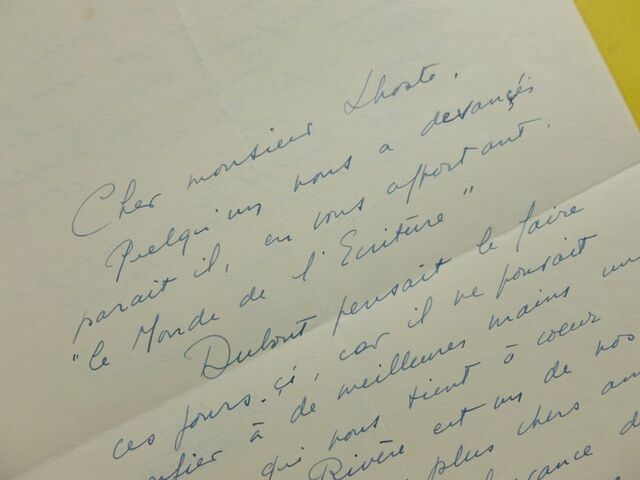 Cher monsieur Lhoste,
Quelqu'un nous a devançés
parait il, en vous apportant.
"Le Monde de l'Ecriture"
Dubout pensait le faire
ces jours-çi, car il ne pouvait
nfier à de meilleures mains un
qui nous tient à coeur
Rivère est un de nos
plus chers am
ance d